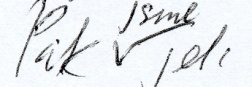 Pak jsme jeli